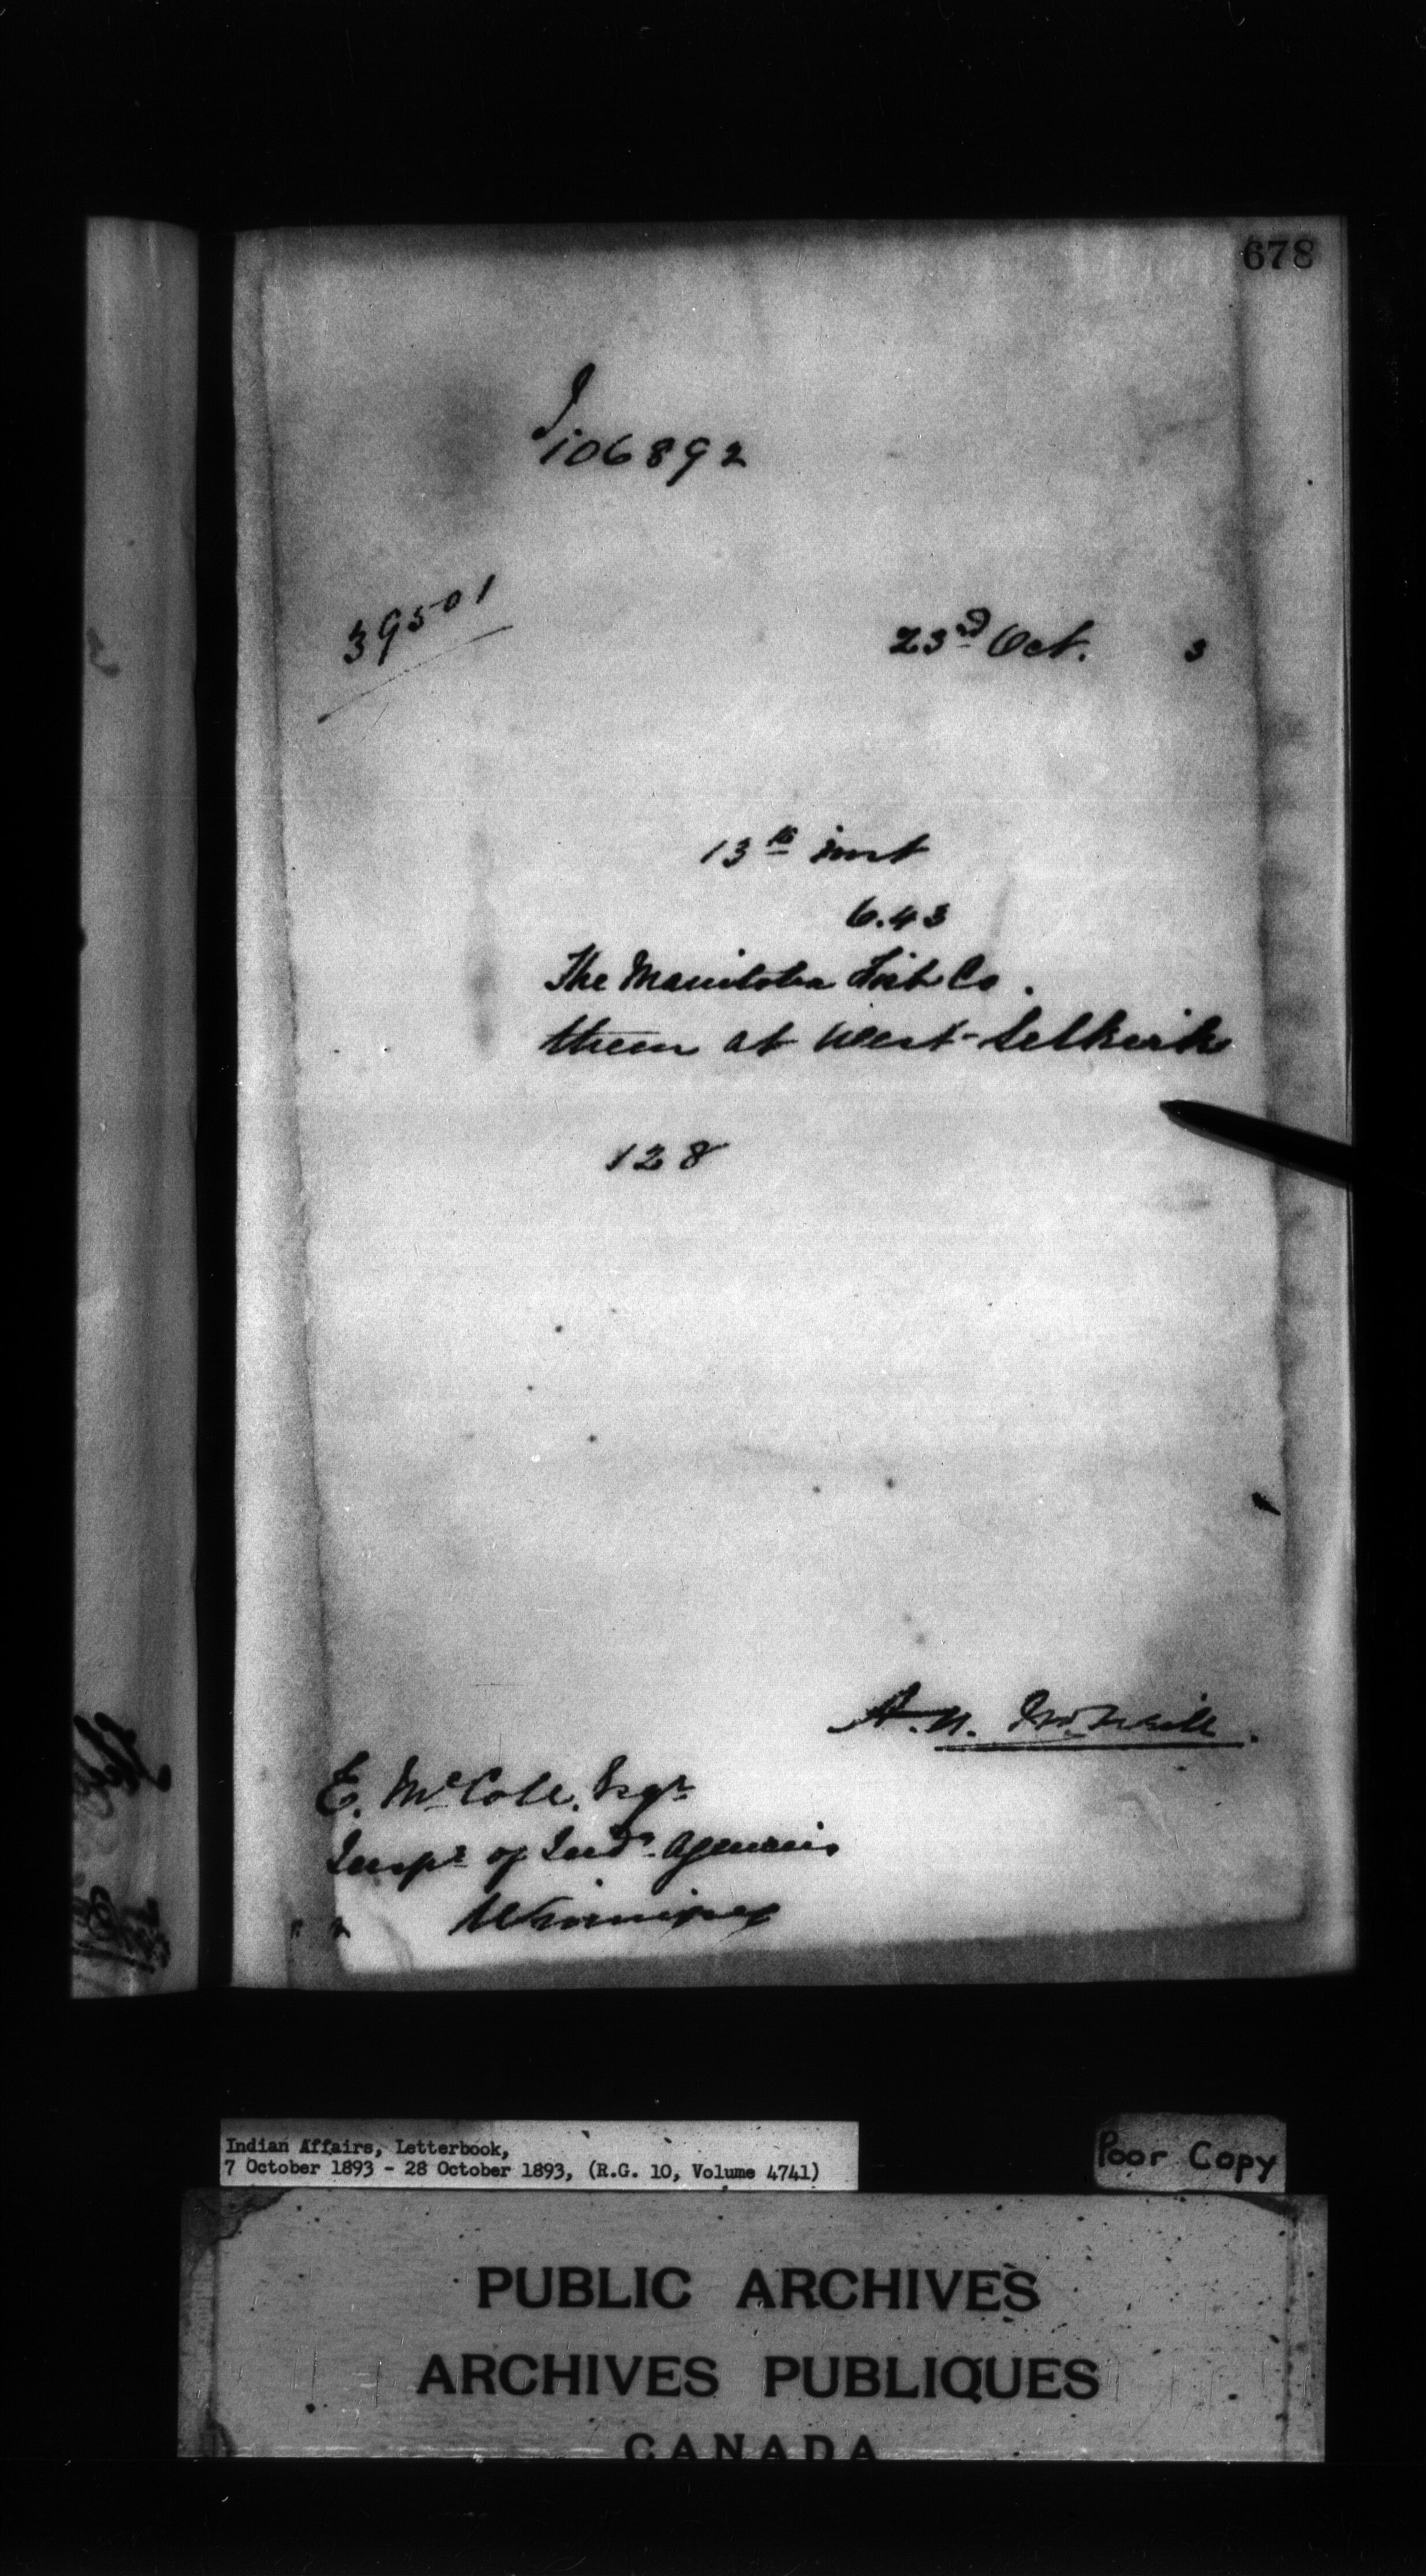 678
106892
39501
23rd Oct. 3
13th inst
6.43
The Manitoba Fish Co.
them at West Selkirk
128
A. N. McNeill.
E. McColl. Esqr
Inspr of Indn. Agencies
Winnipeg
Indian Affairs, Letterbook,
7 October 1893 - 28 October 1893, (R.G. 10, Volume 4741)
Poor Copy
PUBLIC ARCHIVES
ARCHIVES PUBLIQUES
CANADA